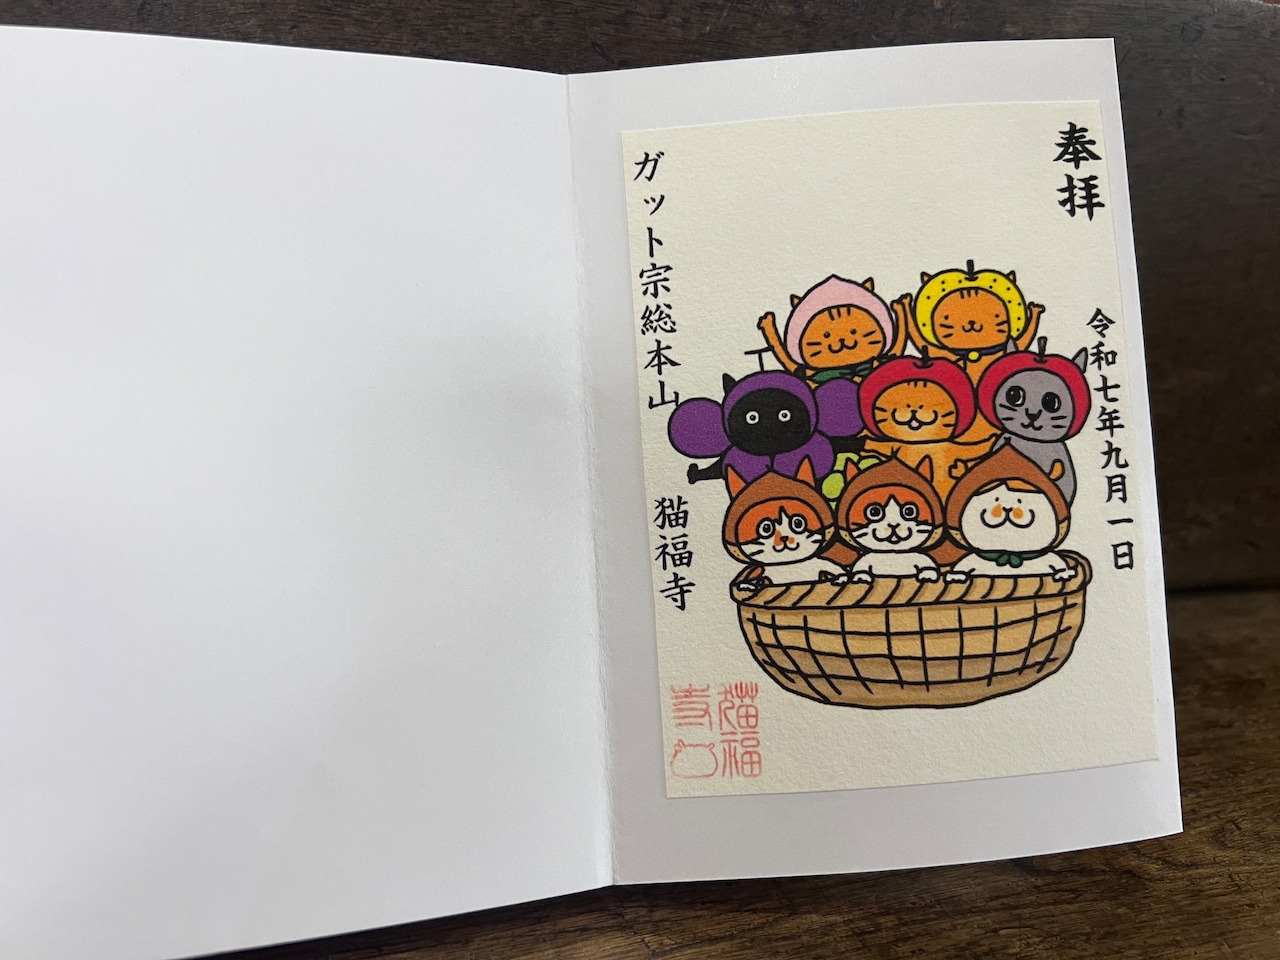 奉拝
令和七年九月一日
ガット宗総本山
猫福寺
猫福
寺